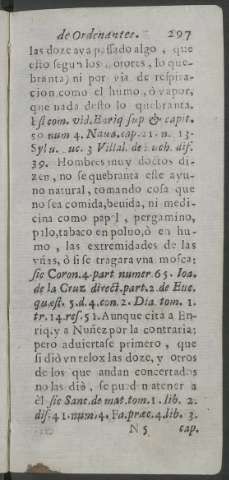 de Ordenantes. 297
las doze aya passado algo, que
esto segun los orores, lo que-
branta) ni por via de respira-
cion como el humo, ò vapor,
que nada desto lo quebranta.
Est com. vid. Bariq sup & capit.
50 num 4. Naua. cap. 21. n. 13.
Sylu. uc. 3 Villal. de dis.
39. Hombres muy doctos di-
zen, no se quebranta este ayu-
no natural, tomando cosa que
no sea comida, beuida, ni medi-
cina como papel, pergamino,
pilo, tabaco en poluo, ò en hu-
mo, las extremidades de las
vñas, ò si se tragara vna mosca:
sic Coron. 4. part numer. 65. Ioa.
de la Cruz direct. part. 2. de Euc.
quæst. 5. d. 4. con. 2. Dia tom. 1.
tr. 14. res. 51. Aunque cita a En-
riq. y a Nuñez por la contraria;
pero aduiertase primero, que
si diò vn relox las doze, y otros
de los que andan concertados
no las diò, se puedn atener a
èl sic Sanc. de mat. tom. 1. lib. 2.
dis. 41. num. 4. Fa. præc. 4. lib. 3.
N 5 cap.